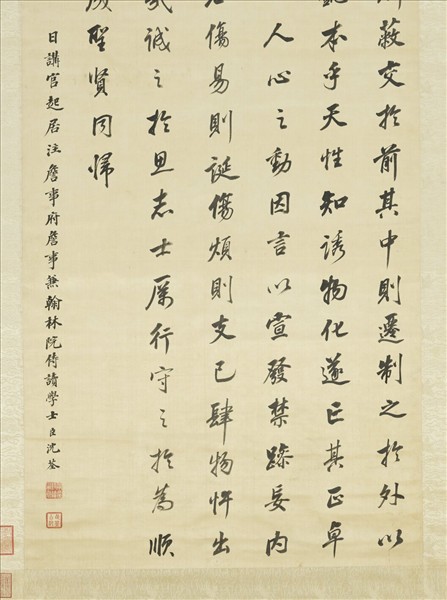 蔽交於前其中則遷制之於外以
本乎天性知誘物化遂亡其正卓
人心之動因言以宣發禁躁妄內
傷易則誕傷煩則支己肆物忤出
幾誠之於思志士厲行守之於為順
成聖賢同歸
日講官起居注詹事府詹事兼翰林院侍讀學士臣沈荃